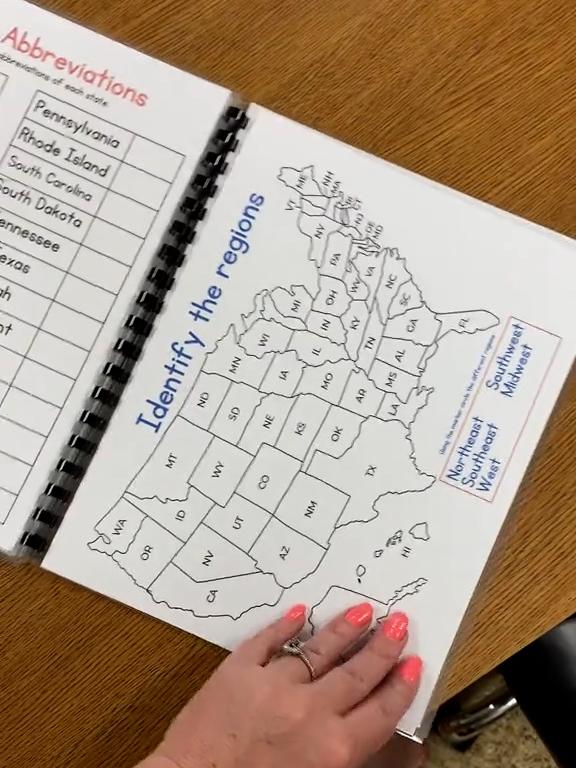 Abbreviations
abbreviations of each state
Pennsylvania
Rhode Island
South Carolina
South Dakota
ennessee
exas
ah
nt
Identify the regions
ME
NH
VT
MA
CT
NY
NJ
DE
MD
PA
WV
VA
NC
SC
OH
KY
TN
GA
FL
MI
IN
IL
WI
AL
MS
MN
IA
MO
AR
LA
ND
SD
NE
KS
OK
TX
MT
WY
CO
NM
ID
UT
AZ
WA
OR
NV
CA
HI
Using the marker circle the different regions
Northeast
Southeast
West
Southwest
Midwest